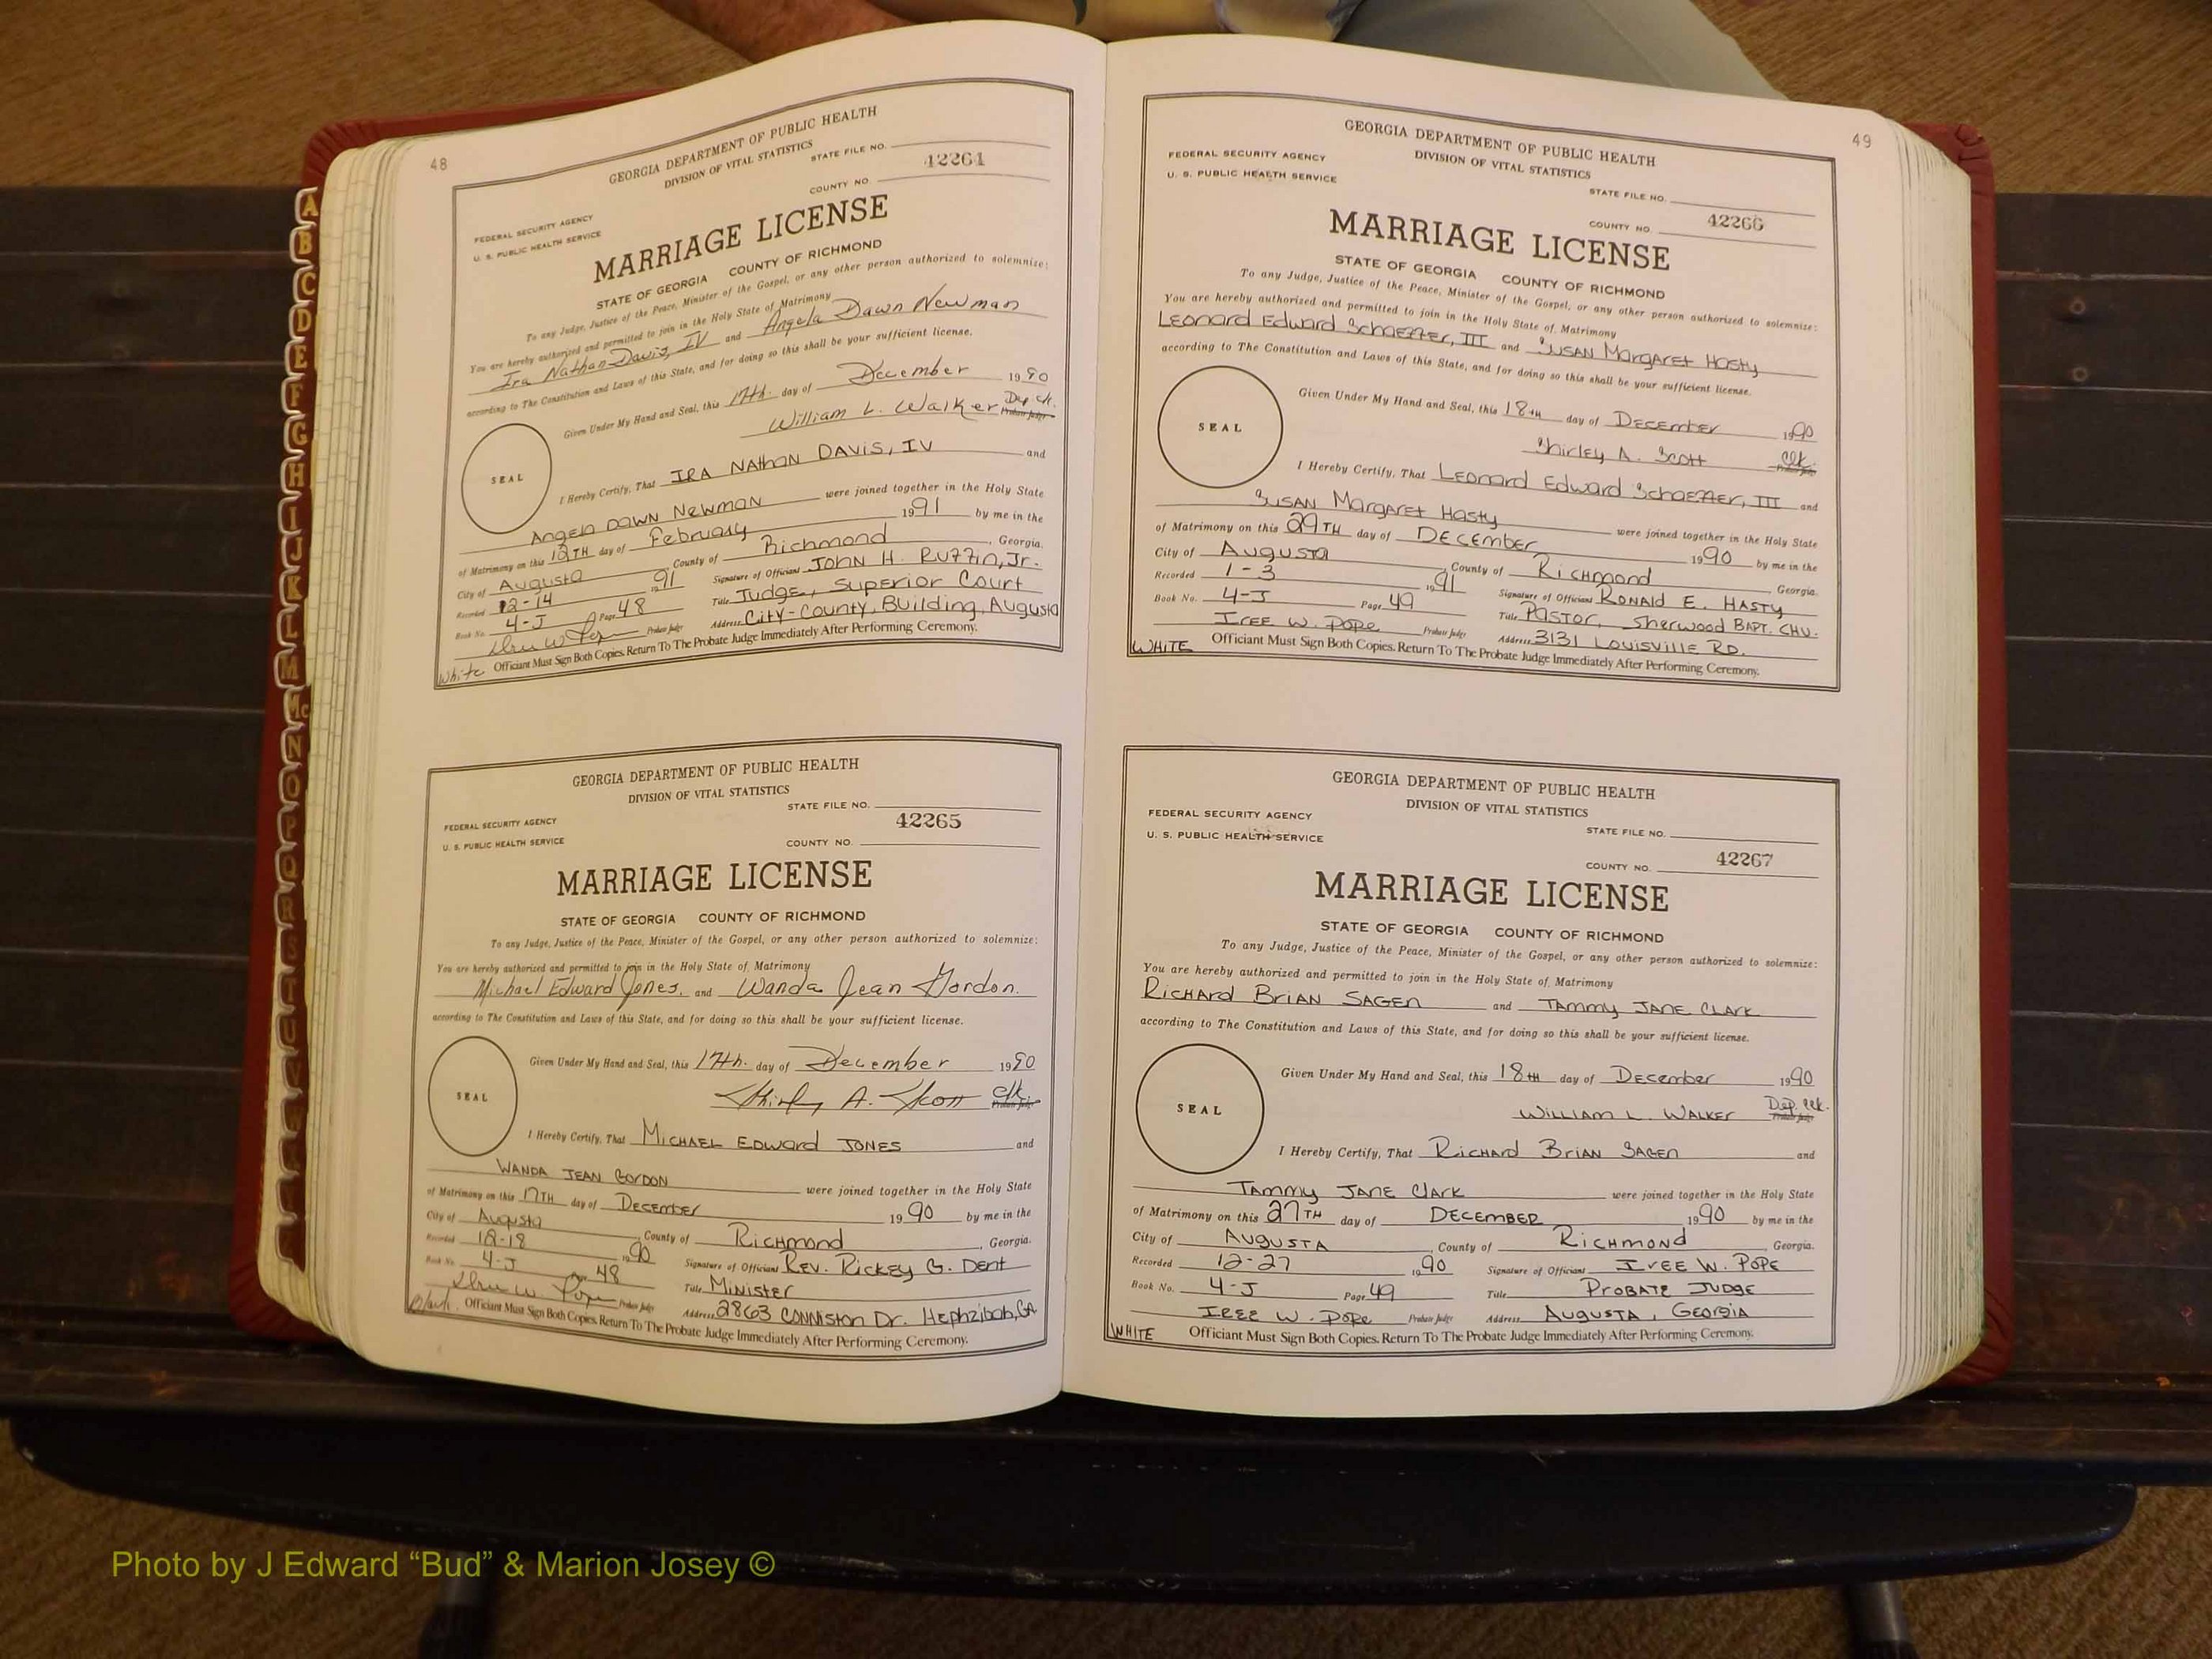 48
GEORGIA DEPARTMENT OF PUBLIC HEALTH
DIVISION OF VITAL STATISTICS
STATE FILE NO.
42264
COUNTY NO.
FEDERAL SECURITY AGENCY
U. S. PUBLIC HEALTH SERVICE
MARRIAGE LICENSE
STATE OF GEORGIA COUNTY OF RICHMOND
To any Judge, Justice of the Peace, Minister of the Gospel, or any other person authorized to solemnize:
You are hereby authorized and permitted to join in the Holy State of Matrimony
Ira Nathan Davis, IV and Angela Dawn Newman
according to The Constitution and Laws of this State, and for doing so this shall be your sufficient license.
Given Under My Hand and Seal, this 17th. day of December 1990
William L. Walker Dep Clk. Probate Judge
SEAL
I Hereby Certify, That IRA NAthAN DAVIS, IV and
ANgelA DAWN NewMAN were joined together in the Holy State
of Matrimony on this 12TH day of February 1991 by me in the
City of Augusta County of Richmond, Georgia.
Recorded 12-14 1991 Signature of Officiant JOHN H. RUZZIN, Jr.
Book No. 4-J Page 48 Title Judge, Superior Court
Probate Judge Address City-County Building, Augusta
White Officiant Must Sign Both Copies. Return To The Probate Judge Immediately After Performing Ceremony.
GEORGIA DEPARTMENT OF PUBLIC HEALTH
DIVISION OF VITAL STATISTICS
STATE FILE NO.
42265
FEDERAL SECURITY AGENCY
U. S. PUBLIC HEALTH SERVICE
COUNTY NO.
MARRIAGE LICENSE
STATE OF GEORGIA COUNTY OF RICHMOND
To any Judge, Justice of the Peace, Minister of the Gospel, or any other person authorized to solemnize:
You are hereby authorized and permitted to join in the Holy State of Matrimony
Michael Edward Jones. and Wanda Jean Gordon.
according to The Constitution and Laws of this State, and for doing so this shall be your sufficient license.
Given Under My Hand and Seal, this 17th. day of December 1990
Shirley A. Scott Clk. Probate Judge
SEAL
I Hereby Certify, That MICHAEL EDWARD JONES and
WANDA JEAN GORDON were joined together in the Holy State
of Matrimony on this 17TH day of December 1990 by me in the
City of Augusta County of Richmond, Georgia.
Recorded 12-18 1990 Signature of Officiant Rev. Rickey G. Dent
Book No. 4-J Page 48 Title Minister
Probate Judge Address 2863 CONNISTON Dr. Hephzibah, GA
Black. Officiant Must Sign Both Copies. Return To The Probate Judge Immediately After Performing Ceremony.
49
GEORGIA DEPARTMENT OF PUBLIC HEALTH
DIVISION OF VITAL STATISTICS
FEDERAL SECURITY AGENCY
U. S. PUBLIC HEALTH SERVICE
STATE FILE NO.
42266
COUNTY NO.
MARRIAGE LICENSE
STATE OF GEORGIA COUNTY OF RICHMOND
To any Judge, Justice of the Peace, Minister of the Gospel, or any other person authorized to solemnize:
You are hereby authorized and permitted to join in the Holy State of Matrimony
Leonard Edward Schaeffer, III and SUSAN Margaret Hasty
according to The Constitution and Laws of this State, and for doing so this shall be your sufficient license.
Given Under My Hand and Seal, this 18TH day of December 1990
Shirley A. Scott Clk. Probate Judge
SEAL
I Hereby Certify, That Leonard Edward Schaeffer, III and
SUSAN Margaret Hasty were joined together in the Holy State
of Matrimony on this 29TH day of DECEMBER 1990 by me in the
City of Augusta County of Richmond Georgia.
Recorded 1-3 1991 Signature of Officiant RONALD E. HASTY
Book No. 4-J Page 49 Title PASTOR, Sherwood BAPT. CHU.
IREE W. POPE Probate Judge Address 3131 LOUISVILLE RD.
WHITE Officiant Must Sign Both Copies. Return To The Probate Judge Immediately After Performing Ceremony.
GEORGIA DEPARTMENT OF PUBLIC HEALTH
DIVISION OF VITAL STATISTICS
FEDERAL SECURITY AGENCY
U. S. PUBLIC HEALTH SERVICE
STATE FILE NO.
42267
COUNTY NO.
MARRIAGE LICENSE
STATE OF GEORGIA COUNTY OF RICHMOND
To any Judge, Justice of the Peace, Minister of the Gospel, or any other person authorized to solemnize:
You are hereby authorized and permitted to join in the Holy State of Matrimony
RICHARD BRIAN SAGEN and TAMMY JANE CLARK
according to The Constitution and Laws of this State, and for doing so this shall be your sufficient license.
Given Under My Hand and Seal, this 18TH day of December 1990
WILLIAM L. WALKER Dep. Clk. Probate Judge
SEAL
I Hereby Certify, That RICHARD BRIAN SAGEN and
TAMMY JANE CLARK were joined together in the Holy State
of Matrimony on this 27TH day of DECEMBER 1990 by me in the
City of AUGUSTA, County of RICHMOND Georgia.
Recorded 12-27 1990 Signature of Officiant IREE W. POPE
Book No. 4-J Page 49 Title PROBATE JUDGE
IREE W. POPE Probate Judge Address AUGUSTA, GEORGIA
WHITE Officiant Must Sign Both Copies. Return To The Probate Judge Immediately After Performing Ceremony.
A
B
C
D
E
F
G
H
I
J
K
L
M
Mc
N
O
P
Q
R
S
T
U
V
Photo by J Edward “Bud” & Marion Josey ©